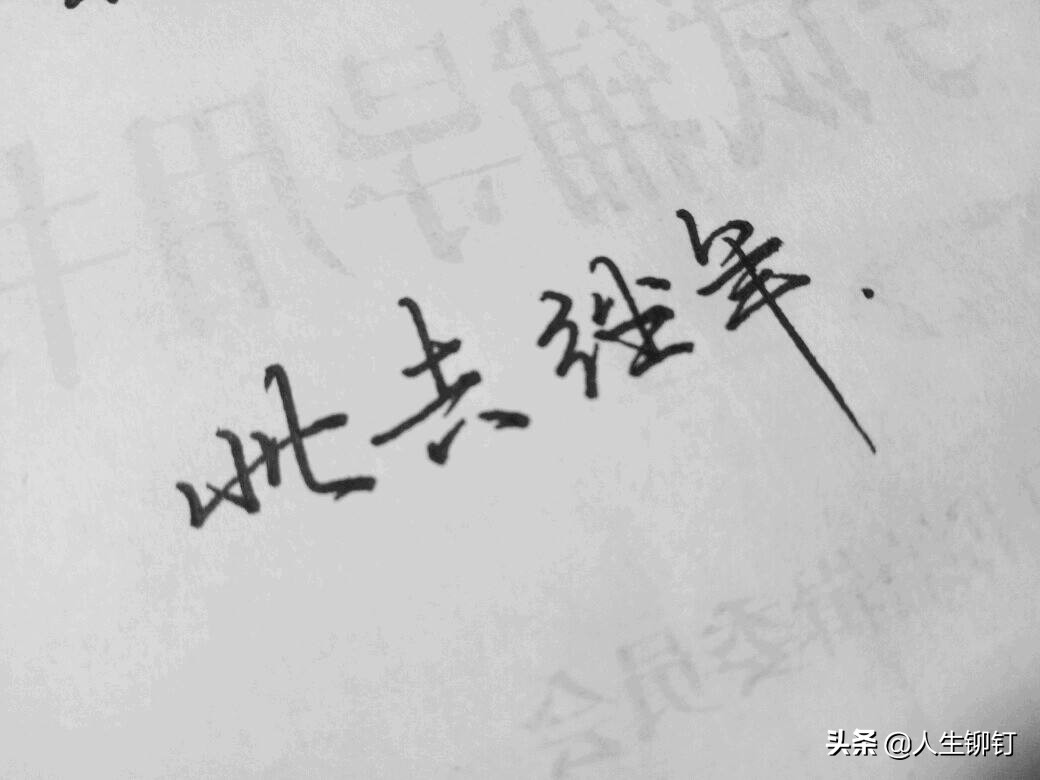 此去经年.
头条 @人生铆钉